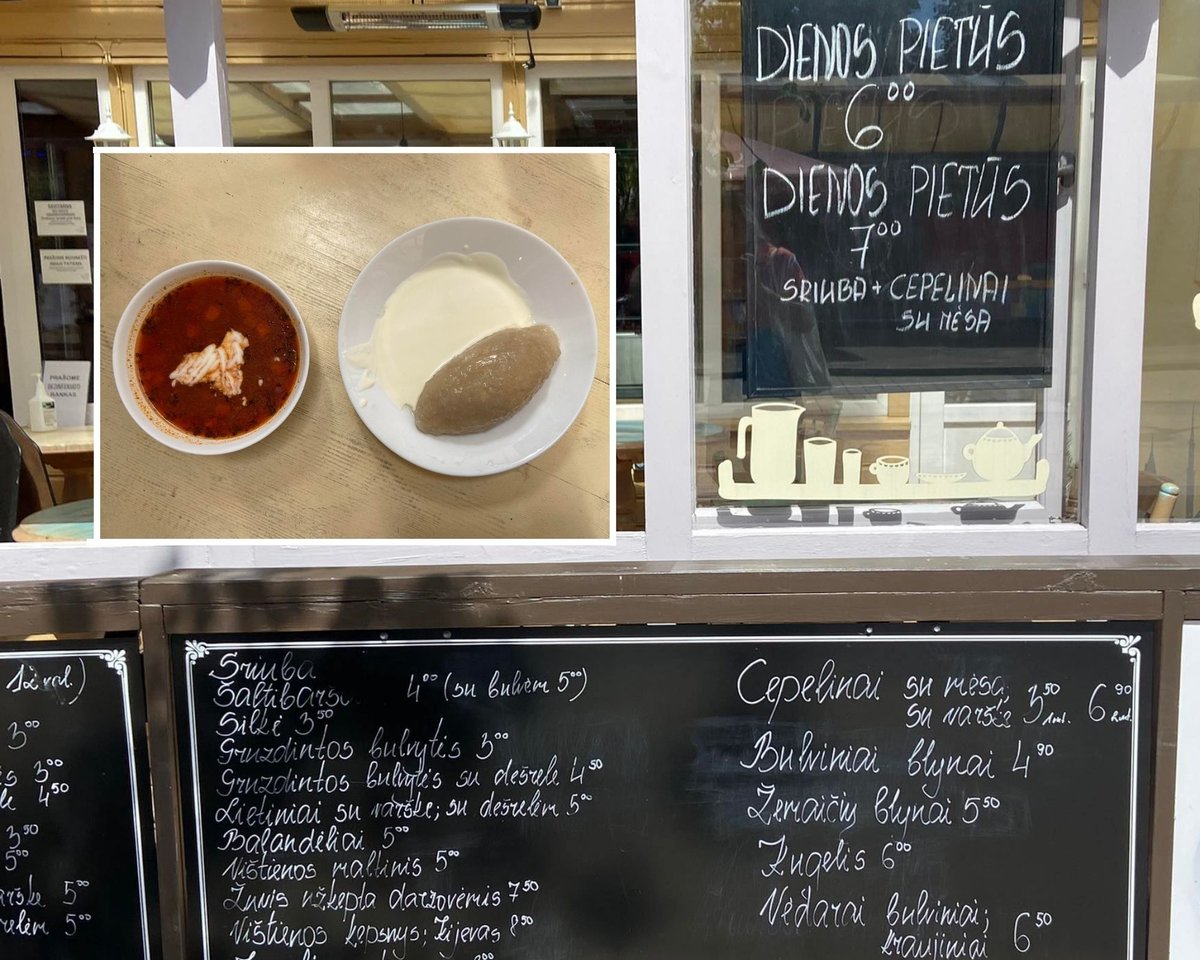 DIENOS PIETŪS
6⁰⁰
DIENOS PIETŪS
7⁰⁰
SRIUBA + CEPELINAI
SU MĖSA
PRAŠOME
DEZINFEKUOTI
RANKAS
3⁰⁰
3⁰⁰
4⁵⁰
3⁵⁰
5⁰⁰
5⁰⁰
5⁰⁰
Sriuba
Šaltibaršč 4⁰⁰ (su bulvėm 5⁰⁰)
Silkė 3⁵⁰
Gruzdintos bulvytės 3⁰⁰
Gruzdintos bulvytės su dešrele 4⁵⁰
Lietiniai su varške; su dešrelėm 5⁰⁰
Balandėliai 5⁰⁰
Vištienos maltinis 5⁰⁰
Žuvis užkepta daržovėmis 7⁵⁰
Vištienos kepsnys; Kijevas 8⁵⁰
Cepelinai su mėsa;
su varške 3⁵⁰ 1vnt. 6⁹⁰ 2vnt.
Bulviniai blynai 4⁹⁰
Žemaičių blynai 5⁵⁰
Kugelis 6⁰⁰
Vėdarai bulviniai;
kraujiniai 6⁵⁰